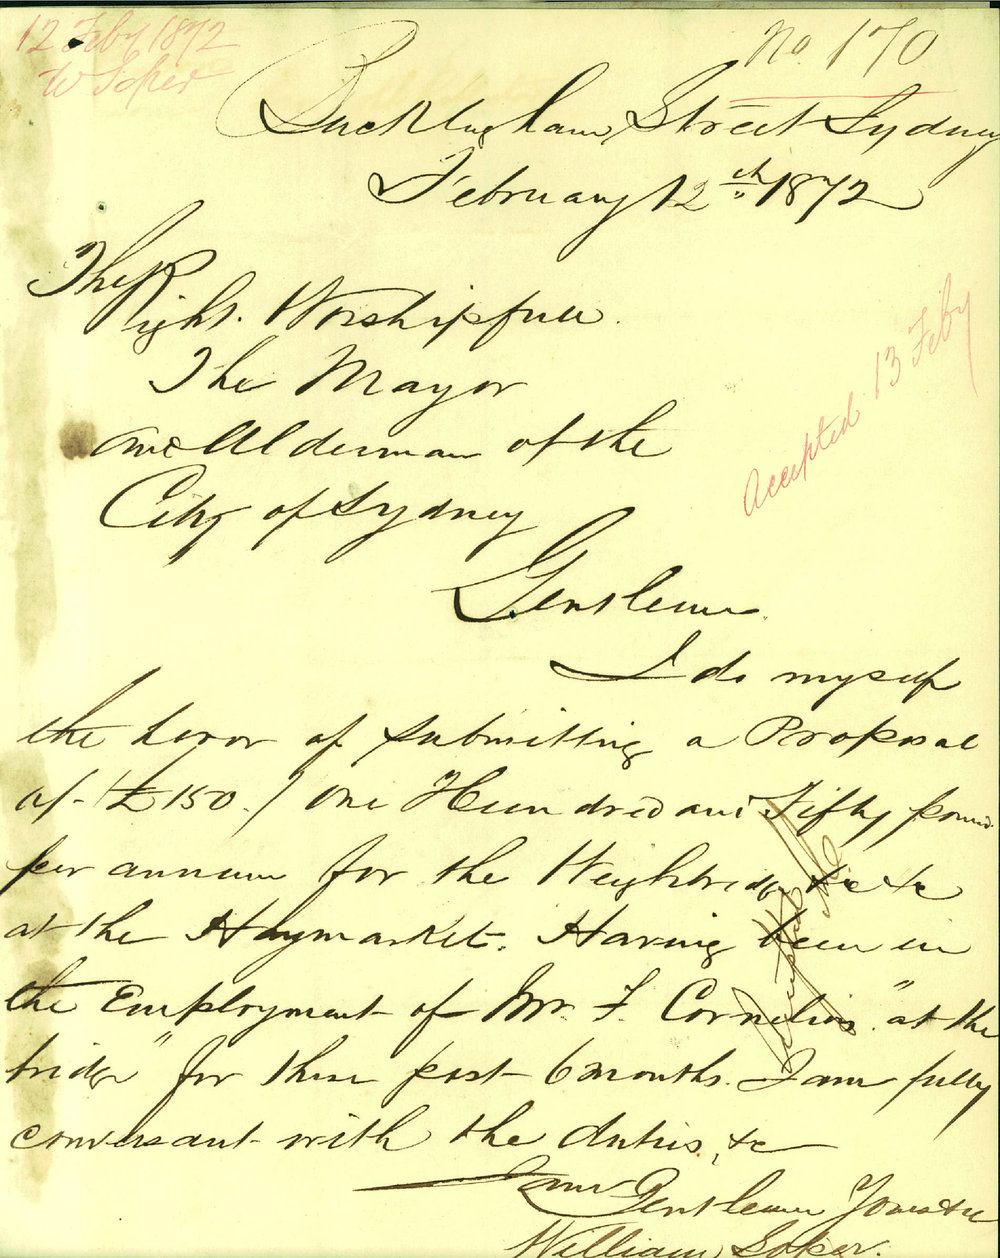 12 Feby 1872
W Soper
No. 170
Buckingham Street Sydney
February 12th 1872
The Right Worshipfull
The Mayor
and Alderman of the
City of Sydney
Gentlemen
I do myself
the honor of submitting a Proposal
of £150./ One Hundred and Fifty pound
per annum for the Weighbridge &c &c
at the Haymarket. Having been in
the Employment of Mr. F. Cornelius "at the
bridge" for these past 6 months. I am fully
conversant with the duties, &c
I am Gentlemen Yours &c
William Soper.
Accepted 13 Feby
Accepted